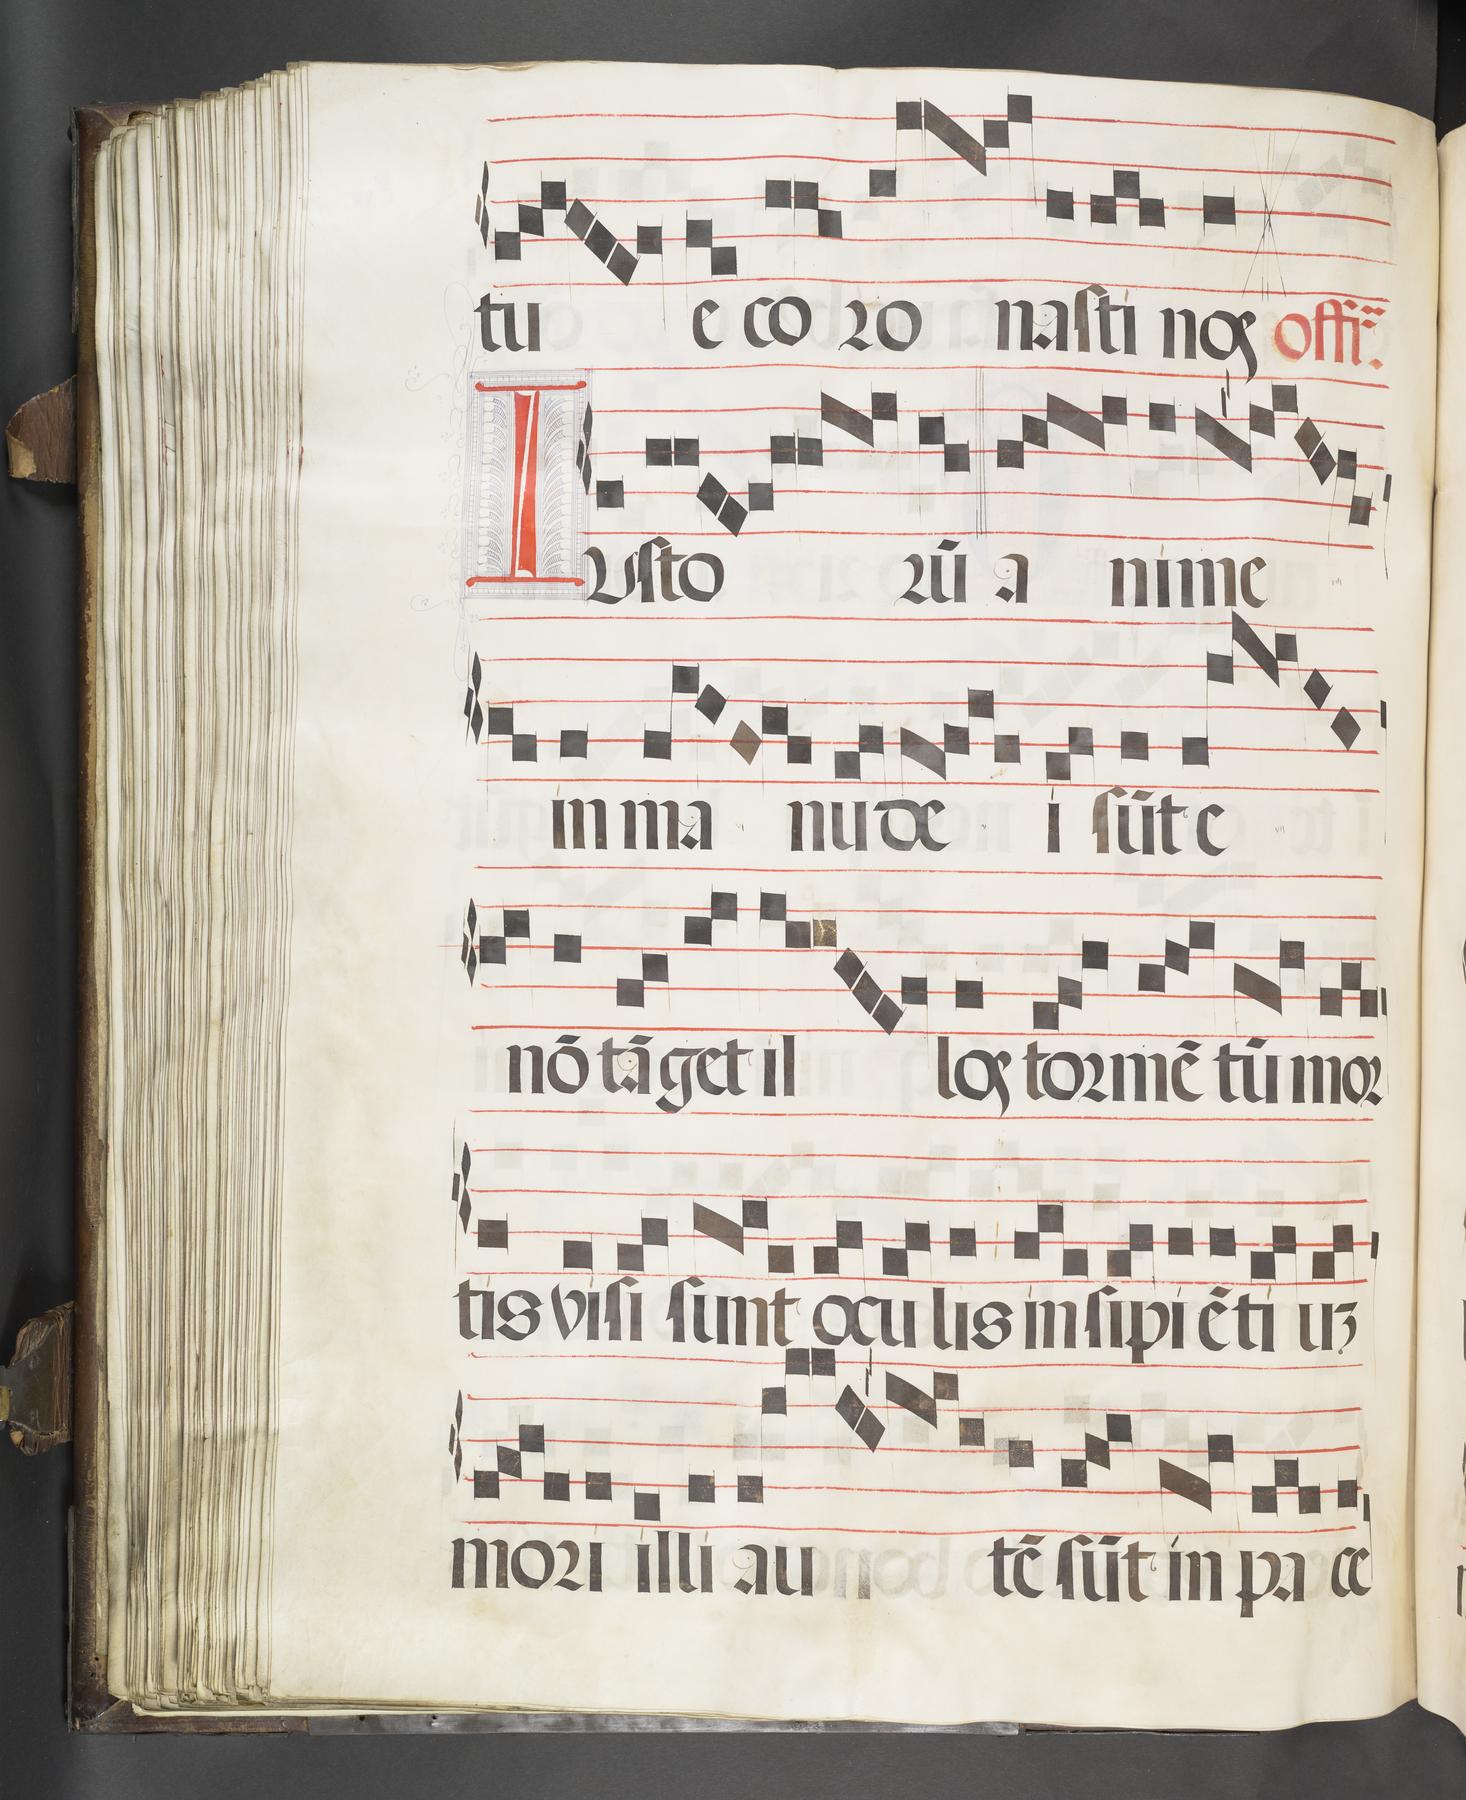 tu e co ro nasti nos offi.
Iusto rū a nime
in ma nu de i sūt e
nō tāget il los tormē tū mor
tis visi sunt oculis insipiēti uꝫ
mori illi au tē sūt in pa ce